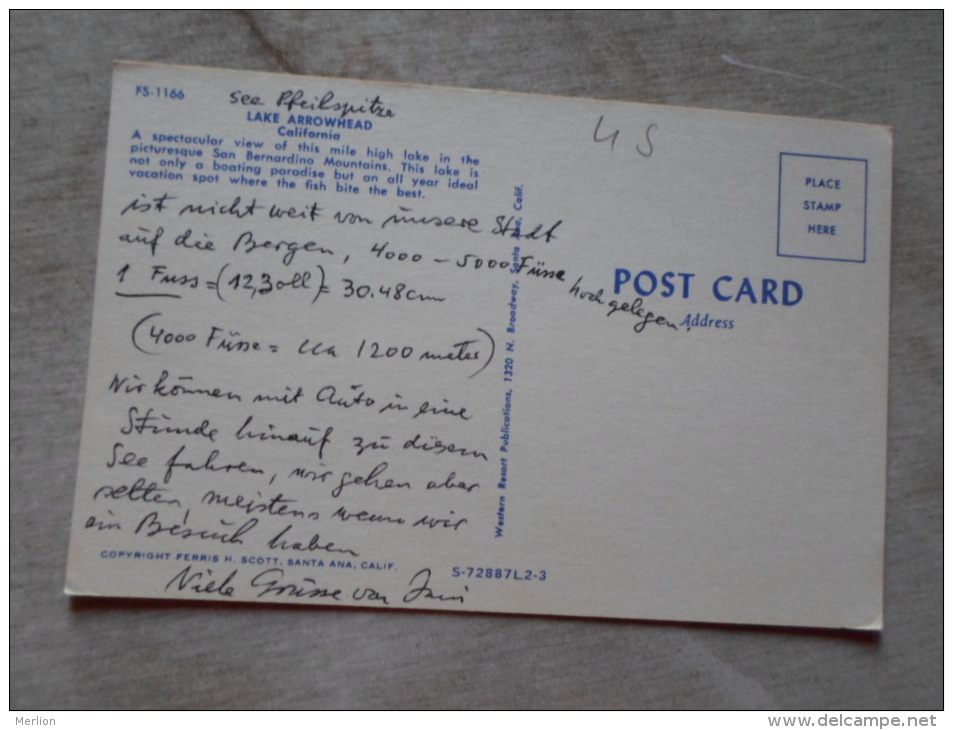 FS-1166
See Pfeilspitze
LAKE ARROWHEAD
California
A spectacular view of this mile high lake in the
picturesque San Bernardino Mountains. This lake is
not only a boating paradise but an all year ideal
vacation spot where the fish bite the best.
ist nicht weit von unsere Stadt
auf die Bergen, 4000 - 5000 Füsse hoch gelegen.
1 Fuss = (12, Zoll) = 30.48 cm
(4000 Füsse = cca 1200 meter)
Wir können mit Auto in eine
Stunde hinauf zu diesem
See fahren, wir gehen aber
selten, meistens wenn wir
ein Besuch haben
COPYRIGHT FERRIS H. SCOTT, SANTA ANA, CALIF.
S-72887L2-3
Viele Grüsse von
Western Resort Publications, 1320 N. Broadway, Santa Ana, Calif.
US
PLACE
STAMP
HERE
POST CARD
Address
Merlion
www.delcampe.net